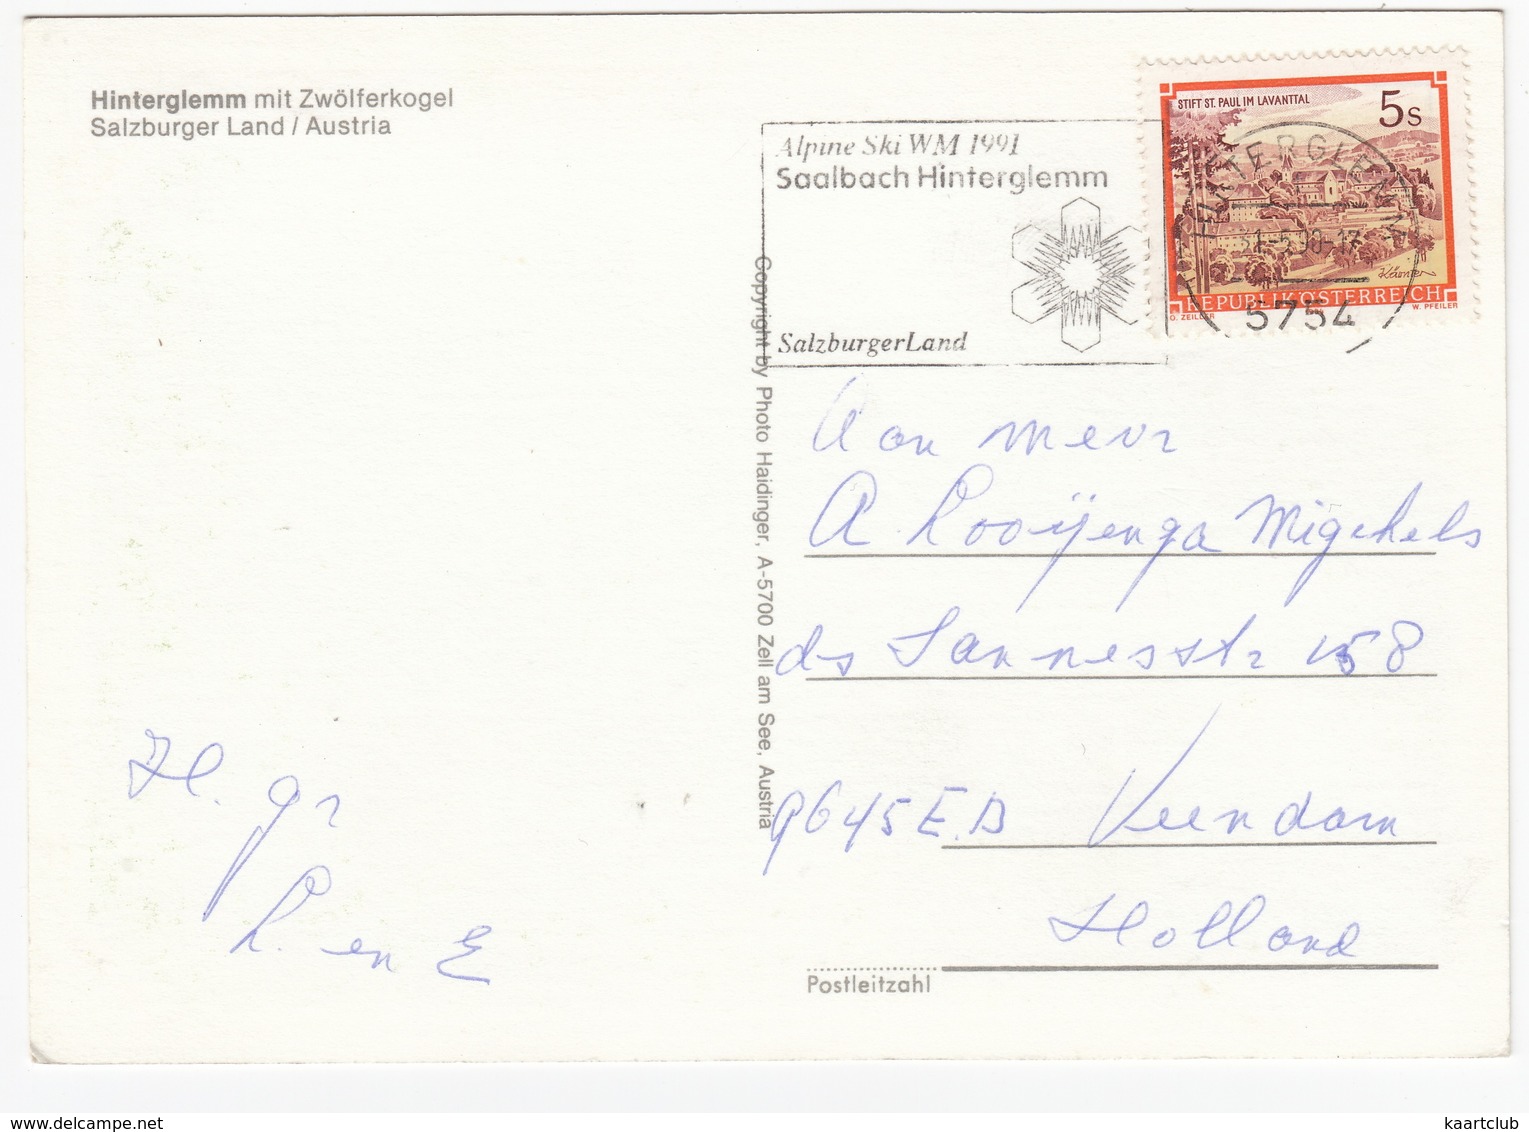 Hinterglemm mit Zwölferkogel
Salzburger Land / Austria
Alpine Ski WM 1991
Saalbach Hinterglemm
SalzburgerLand
STIFT ST. PAUL IM LAVANTTAL
5s
Kärnten
REPUBLIK ÖSTERREICH
O. ZEILLER
W. PFEILER
HINTERGLEMM
31-5.90-17
5754
Copyright by Photo Haidinger, A-5700 Zell am See, Austria
Aan mevr
A. Looijenga Migchels
ds Sannesstr 158
9645 E.B Veendam
Holland
Postleitzahl
H. gr
L. en E
delcampe.net
kaartclub